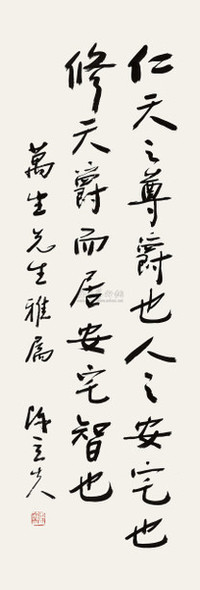 仁天之尊爵也人之安宅也
修天爵而居安宅智也
萬生先生雅屬
陳立夫